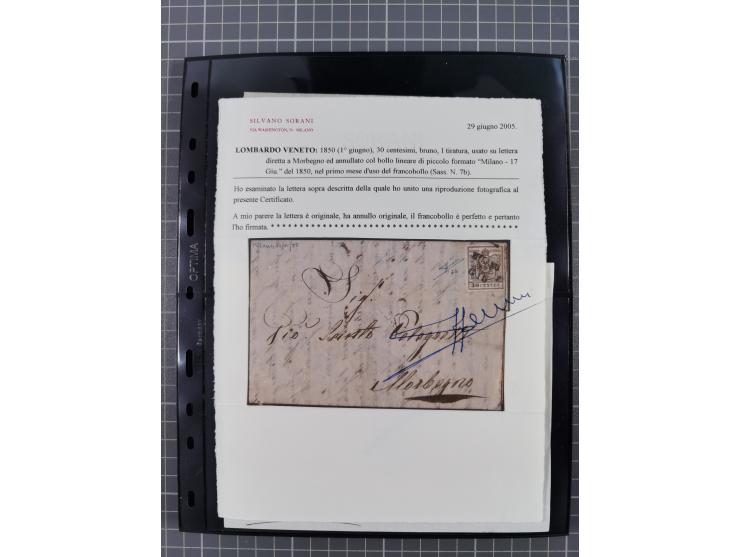 SILVANO SORANI
29 giugno 2005.
LOMBARDO VENETO: 1850 (1° giugno), 30 centesimi, bruno, I tiratura, usato su lettera
diretta a Morbegno ed annullato col bollo lineare di piccolo formato “Milano - 17
Giu.” del 1850, nel primo mese d'uso del francobollo (Sass. N. 7b).
Ho esaminato la lettera sopra descritta della quale ho unito una riproduzione fotografica al
presente Certificato.
A mio parere la lettera è originale, ha annullo originale, il francobollo è perfetto e pertanto
l'ho firmata.
OPTIMA
30 CENTES
Morbegno